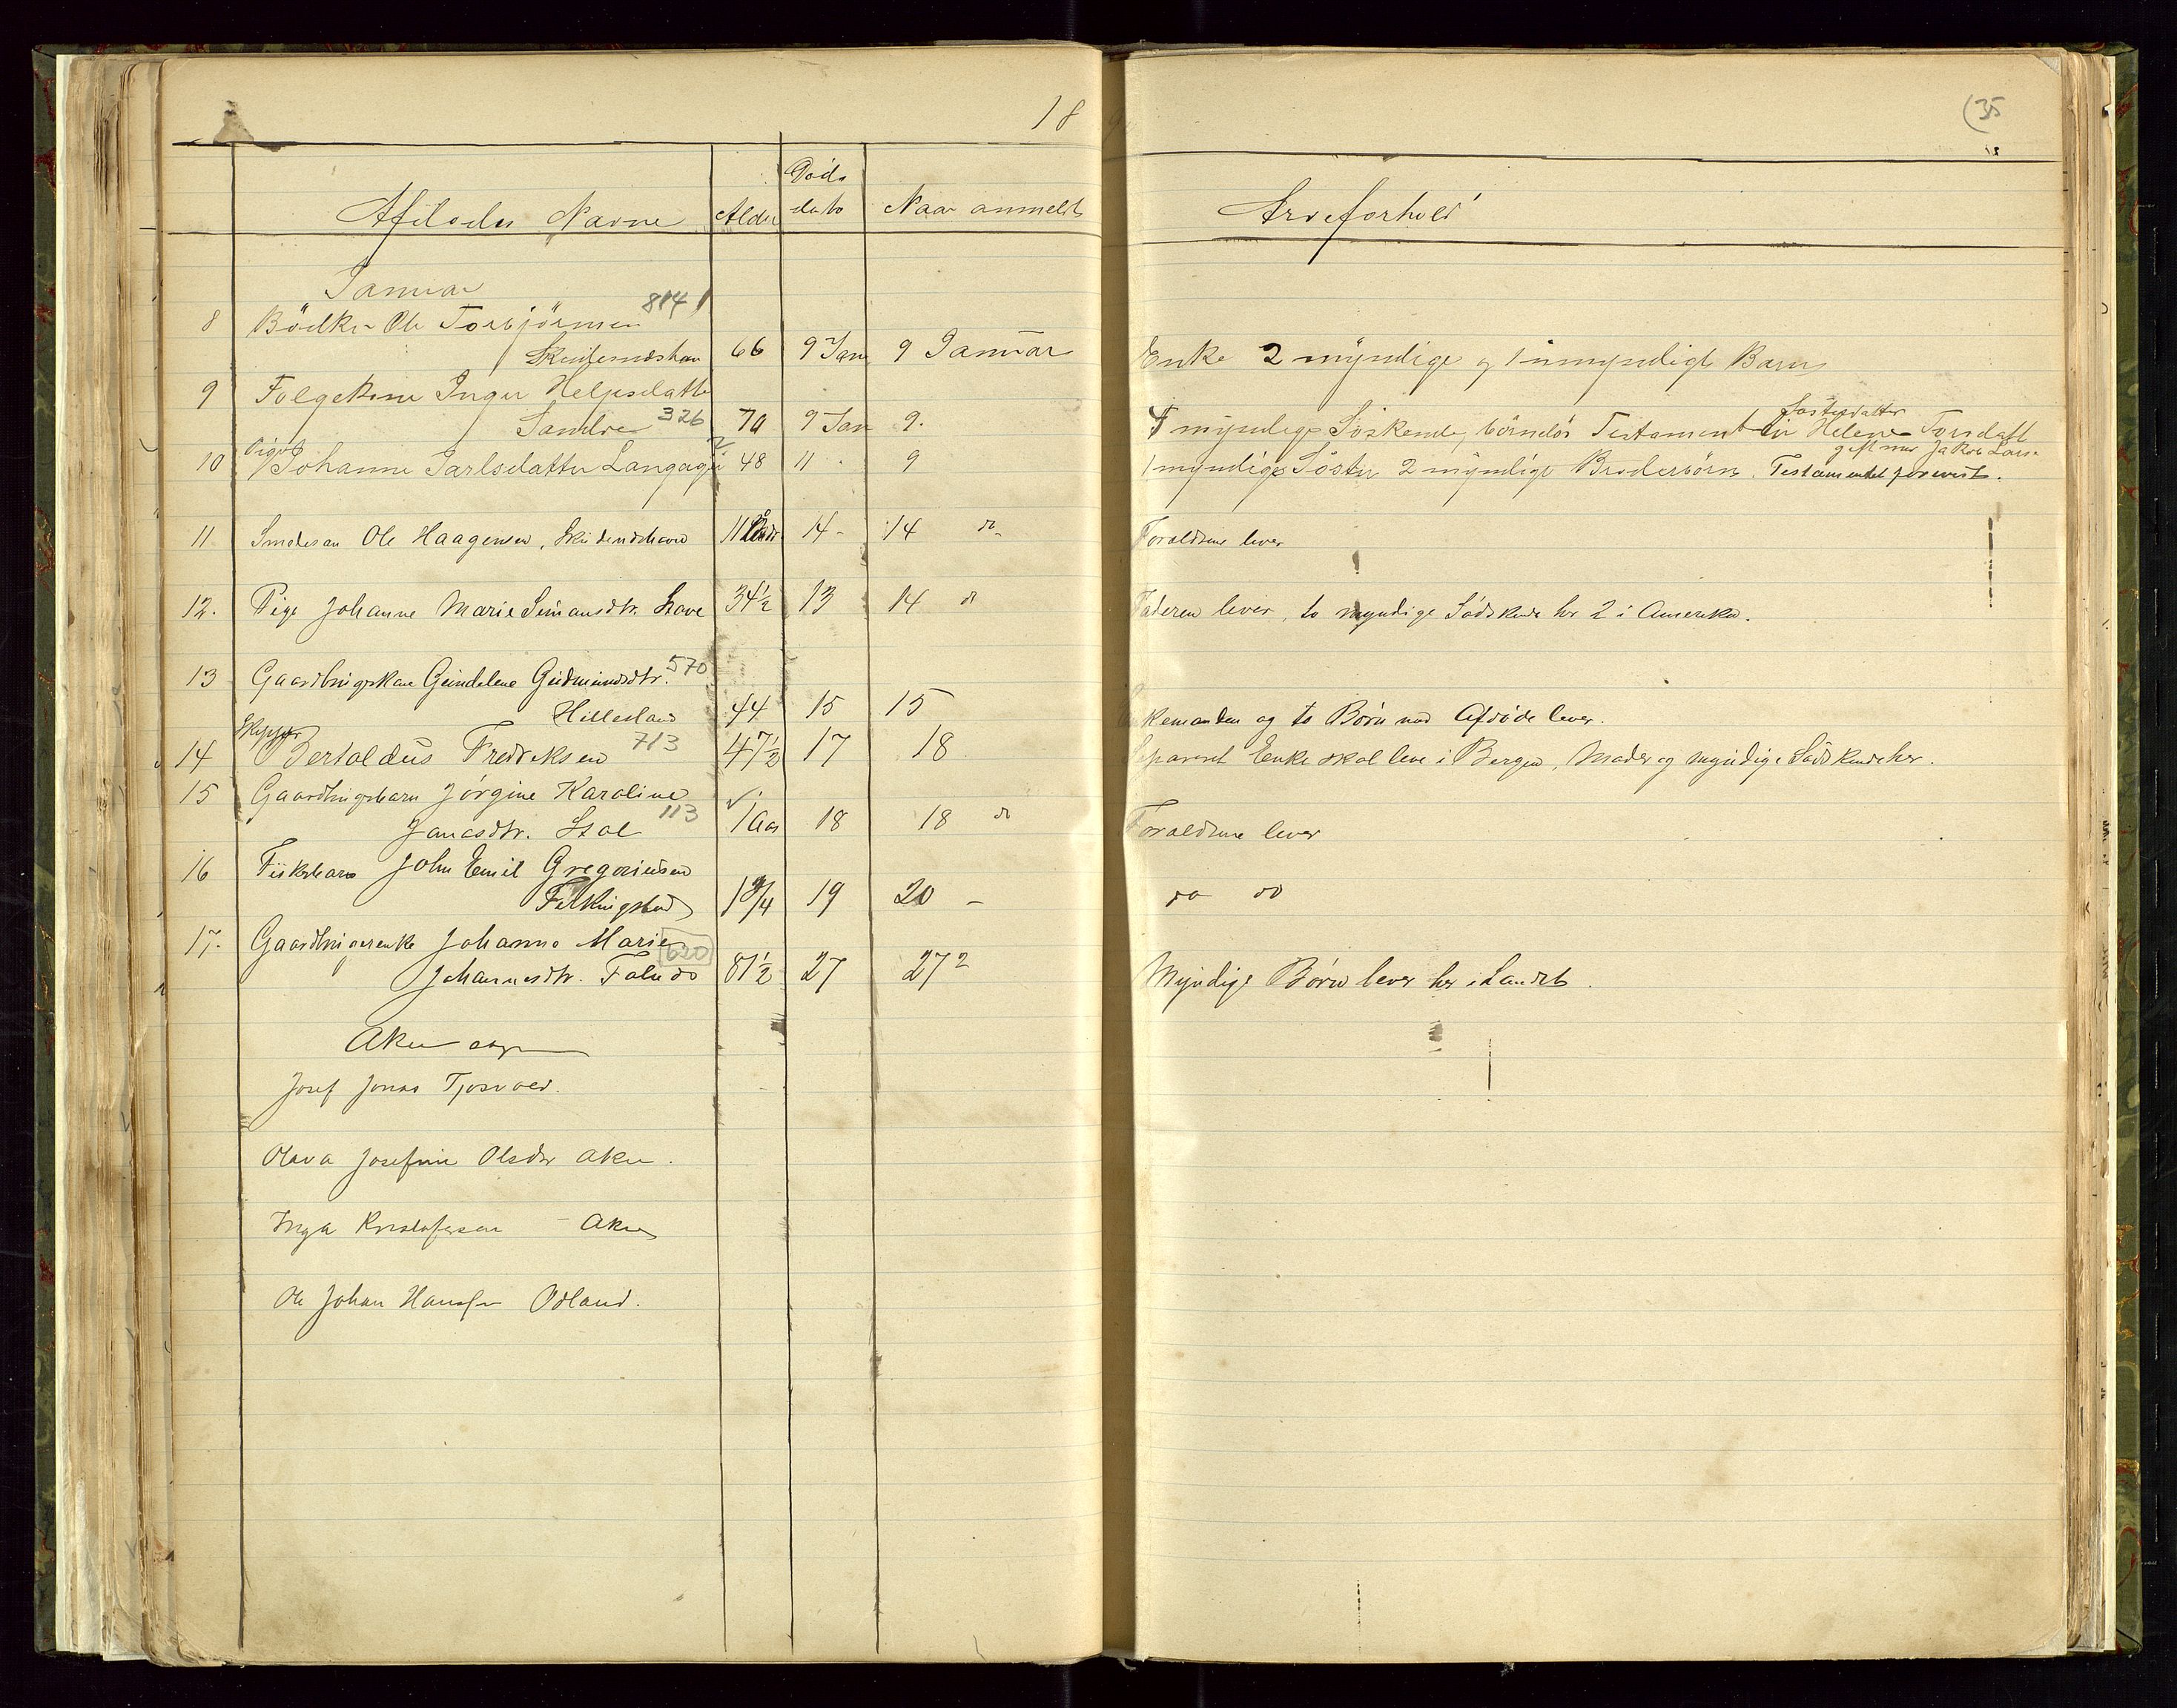 18
(35
Afdödes Navne Alder Döds dato Naar anmeldt Arveforhold
Januar
8 Bödker Ole Torbjörnsen 814
Skudesneshavn 66 9 Jan 9 Januar Enke 2 myndige og 1 umyndigt Barn
9 Folgekone Inger Helgesdatter
Sandve 326 70 9 Jan 9. 4 myndige Söskende, börnelös Testament Helene Torsdatt
Sösterdatter
gift med Jakob Lars.
10 Pige Johanne Jarlsdatter Langag 48 11 9 1 myndige Söster 2 myndige Broderbörn. Testamentet forevist.
11 Smedesøn Ole Haagensen, Skudeneshavn 11 14 - 14 do - Forældrene lever
12. Pige Johanne Marie Simonsdtr. Have 34½ 13 14 do Faderen lever, to myndige Södskende her 2 i Amerika.
13 Gaardbrugerkone Gundelene Gudmundsdtr. 570
Hillesland 44 15 15 Enkemanden og to Börn med Afdöde lever.
14 Skipper Bertoldus Fredriksen 713 47½ 17 18 Separeret Enke skal leve i Bergen, Moder og myndige Södskende her.
15 Gaardbrugerbarn Jörgine Karoline
Jonasdtr. Stol 113 1 Aar 18 18 do Forældrene lever
16 Fiskerbarn John Emil Gregoriussen
Ferkingstad 1¾ 19 20 - do do
17. Gaardbrugerenke Johanna Marie
Johannesdtr. Falnes 620 81½ 27 27 Myndige Börn lever her i Landet.
Josef Jonas Tjosvold.
Olava Josefine Olsdtr Aker.
Inga Kristofersen - Aker
Ole Johan Hansen Ödland.